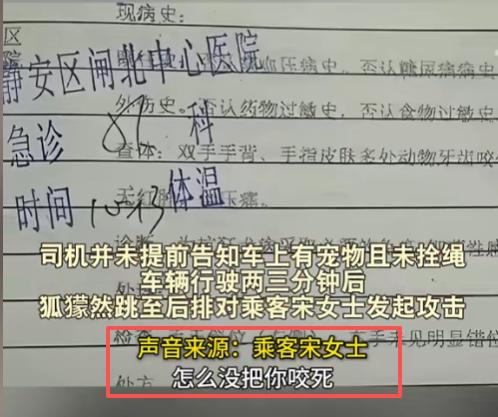 现病史：
区
压病史。否认糖尿病病史
静安区闸北中心医院
外伤史。否认药物过敏史，否认食物过敏史
急诊 科
查体：双手手背、手指皮肤多处动物牙齿咬
体温
时间 10:13
司机并未提前告知车上有宠物且未拴绳
车辆行驶两三分钟后
狐獴然跳至后排对乘客宋女士发起攻击
检查
声音来源：乘客宋女士
见明显错位
怎么没把你咬死
处方